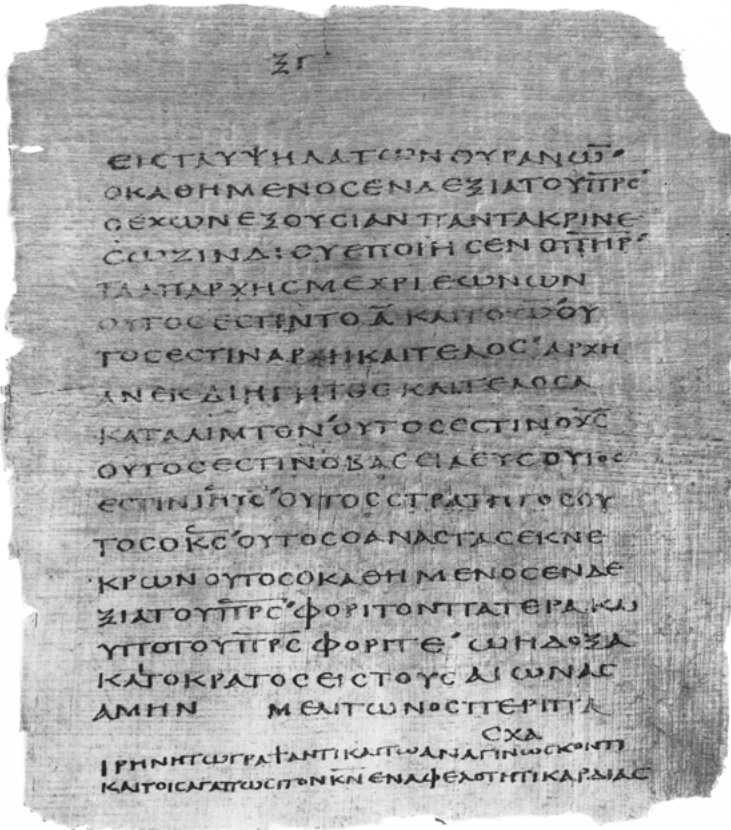 ΞΓ
ΕΙCΤΑΥΨΗΛΑΤΩΝΟΥΡΑΝΩ̅
ΟΚΑΘΗΜΕΝΟCΕΝΔΕΞΙΑΤΟΥΠ̅Ρ̅C̅
ΟΕΧΩΝΕΞΟΥCΙΑΝΠΑΝΤΑΚΡΙΝΕ
CΩΖΙΝΔΙΟΥΕΠΟΙΗCΕΝΟΠ̅Η̅Ρ̅
ΤΑΑΠΑΡΧΗCΜΕΧΡΙΕΩΝΩΝ
ΟΥΤΟCΕCΤΙΝΤΟΑ̅ΚΑΙΤΟΩ̅ΟΥ
ΤΟCΕCΤΙΝΑΡΧΗΚΑΙΤΕΛΟC ΑΡΧΗ
ΑΝΕΚΔΙΗΓΗΤΟC ΚΑΙΤΕΛΟCΑ
ΚΑΤΑΛΙΜΤΟΝ ΟΥΤΟCΕCΤΙΝΟΧ̅C̅
ΟΥΤΟCΕCΤΙΝΟΒΑCΕΙΛΕΥCΟΥΤΟC
ΕCΤΙΝΙ̅Η̅C̅ ΟΥΤΟCCΤΡΑΤΗΓΟCΟΥ
ΤΟCΟΚ̅C̅ ΟΥΤΟCΟΑΝΑCΤΑCΕΚΝΕ
ΚΡΩΝΟΥΤΟCΟΚΑΘΗΜΕΝΟCΕΝΔΕ
ΞΙΑΤΟΥΠ̅Ρ̅C̅ ΦΟΡΙΤΟΝΠΑΤΕΡΑΚΑΙ
ΥΠΟΤΟΥΠ̅Ρ̅C̅ΦΟΡΙΤΕ ΩΗΔΟΞΑ
ΚΑΤΟΚΡΑΤΟCΕΙCΤΟΥCΑΙΩΝΑC
ΑΜΗΝ ΜΕΛΙΤΩΝΟCΠΕΡΙΠΑ
CΧΑ
ΙΡΗΝΗΤΩΓΡΑΨΑΝΤΙΚΑΙΤΩΑΝΑΓΙΝΩCΚΟΝΤΙ
ΚΑΙΤΟΙCΑΓΑΠΩCΙΤΟΝΚ̅Ν̅ΕΝΑΦΕΛΟΤΗΤΙΚΑΡΔΙΑC